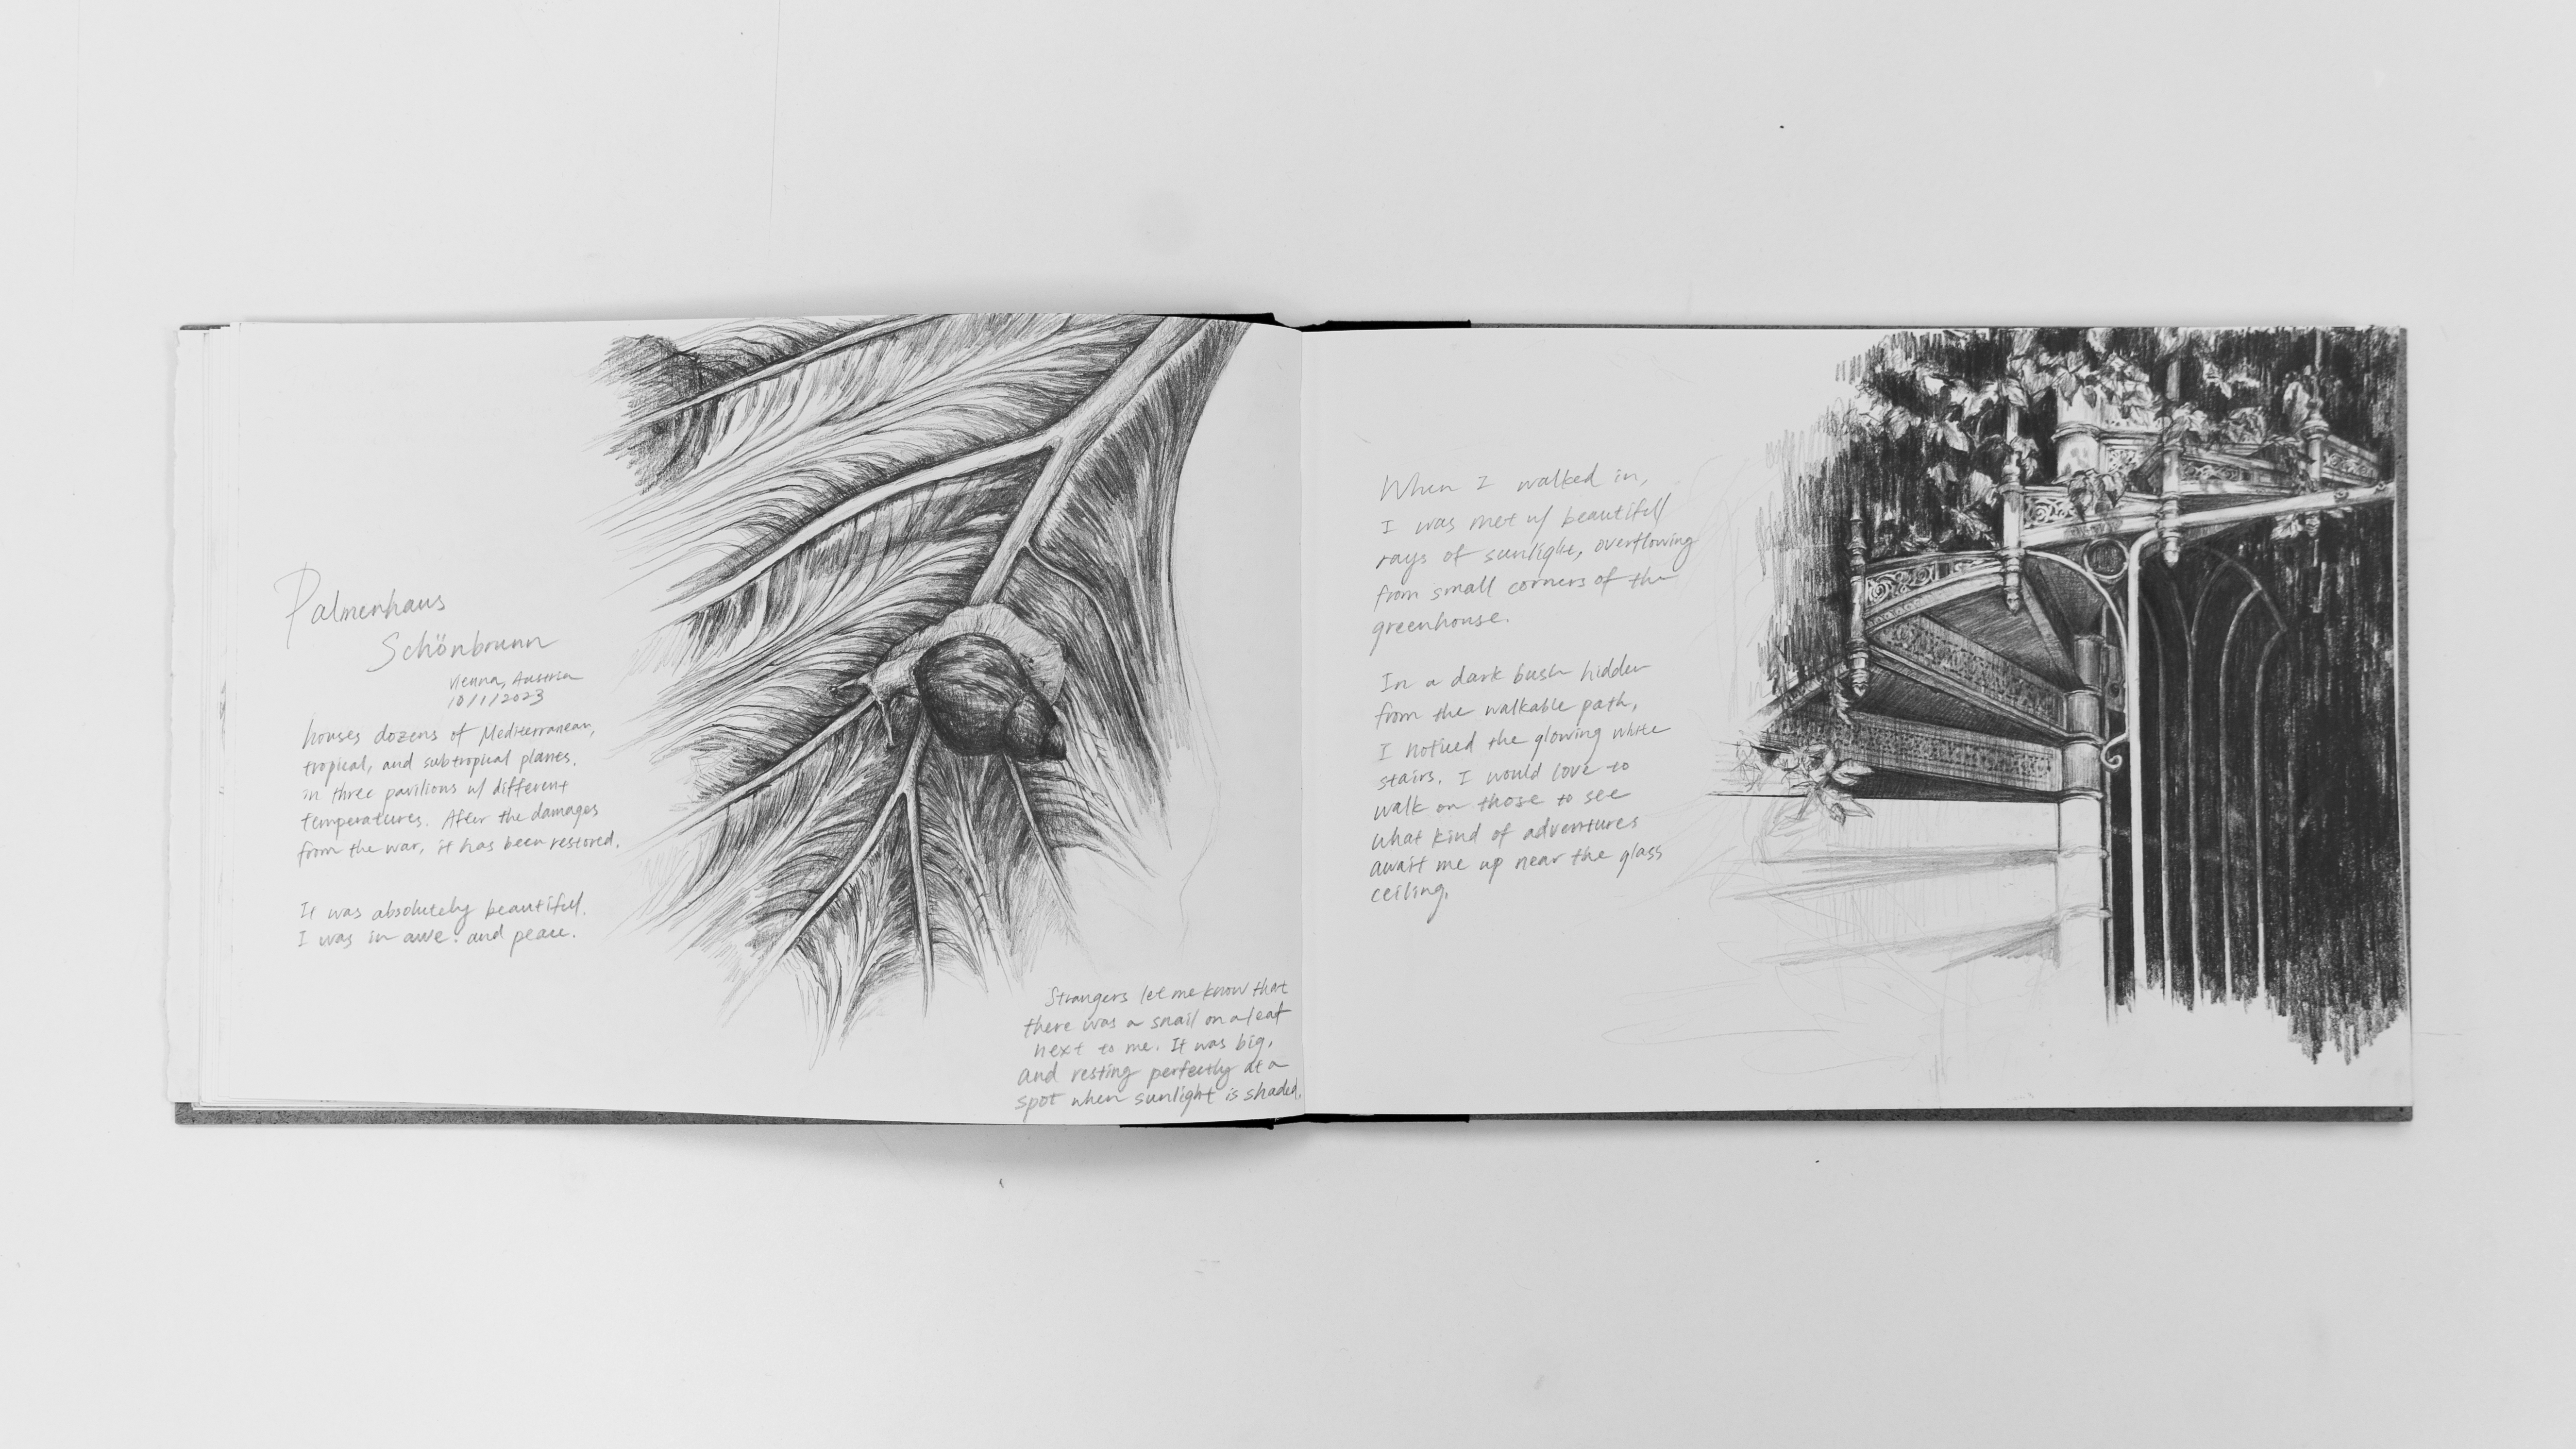 Palmenhaus
Schönbrunn
Vienna, Austria
10/1/2023
houses dozens of Mediterranean,
tropical, and subtropical plants,
in three pavilions w/ different
temperatures. After the damages
from the war, it has been restored.
It was absolutely beautiful.
I was in awe. and peace.
Strangers let me know that
there was a snail on a leaf
next to me. It was big,
and resting perfectly at a
spot when sunlight is shaded.
When I walked in,
I was met w/ beautiful
rays of sunlight, overflowing
from small corners of the
greenhouse.
In a dark bush hidden
from the walkable path,
I noticed the glowing white
stairs. I would love to
walk on those to see
what kind of adventures
await me up near the glass
ceiling.